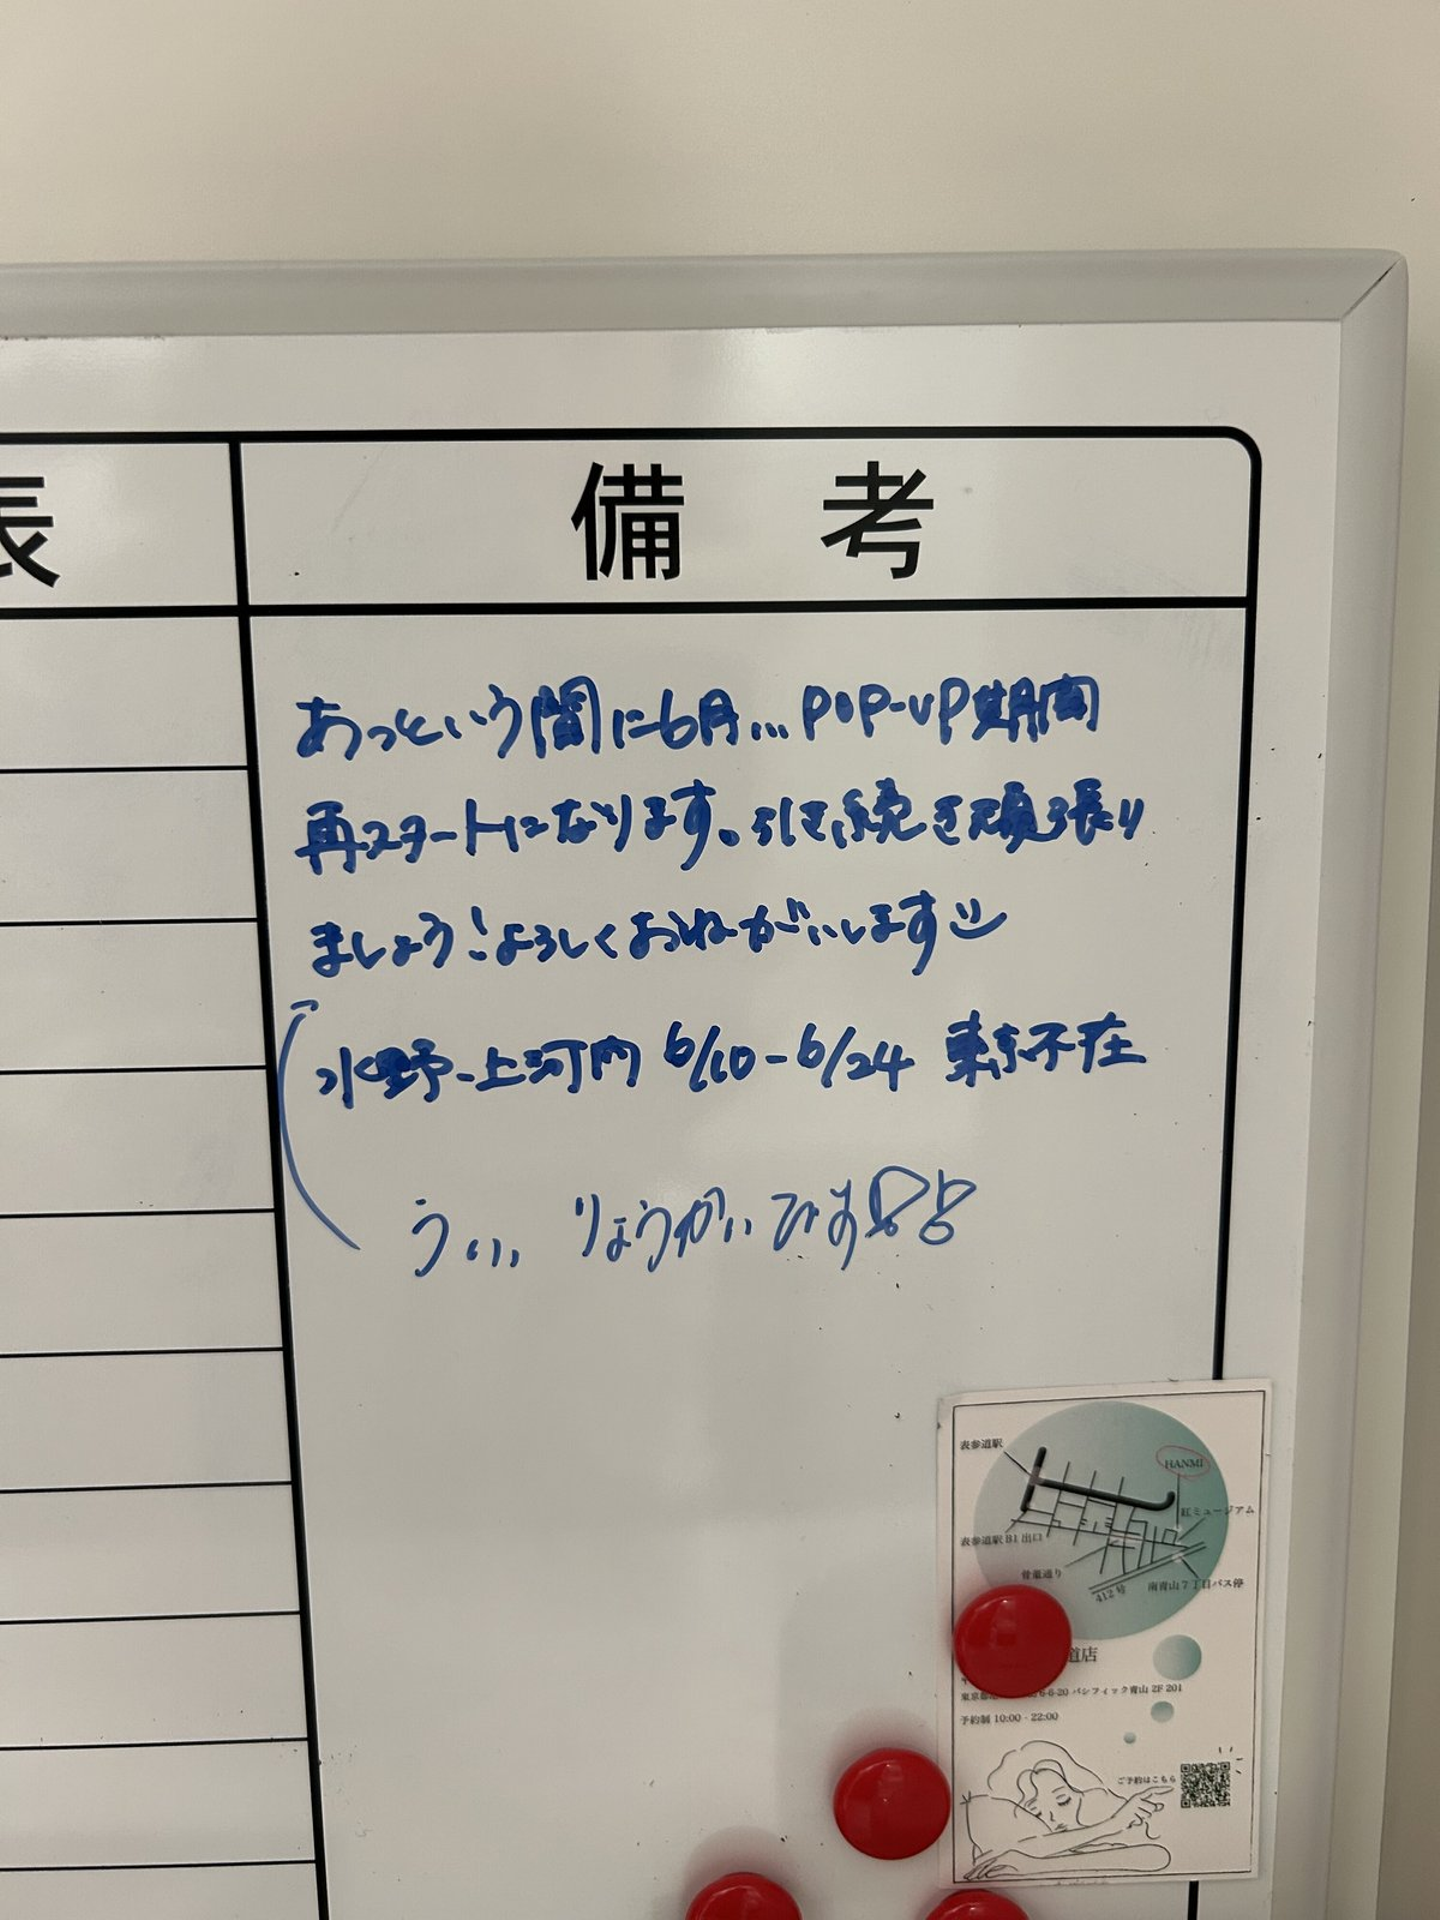 表
備考
あっという間に6月... POP-UP期間
再スタートになります。引き続き頑張り
ましょう！よろしくおねがいします
水野・上河内 6/10-6/24 東京不在
うぃ、りょうかいです
表参道駅
HANMI
紅ミュージアム
表参道駅 B1 出口
骨董通り
412号
南青山7丁目バス停
道店
6-6-20 パシフィック青山 2F 201
予約制 10:00 - 22:00
ご予約はこちら